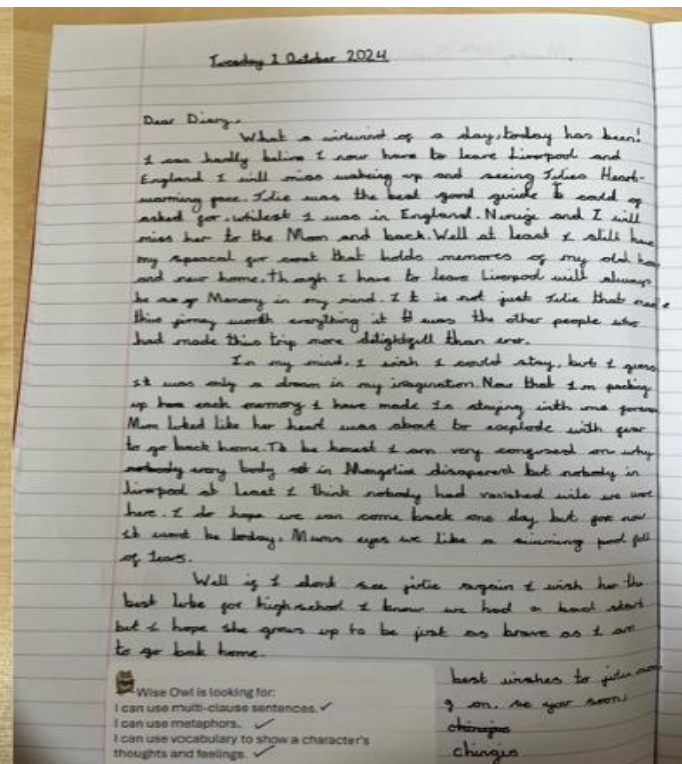 Tuesday 1 October 2024
Dear Diary,
What a wirwind of a day, today has been!
I can hardly belive I now have to leave Liverpool and
England I will miss wakeing up and seeing Julies Heart-
warming face. Julie was the best good guide I could of
asked for. whilest I was in England. Nergui and I will
miss her to the Moon and back. Well at least I still have
my speacal fur coat that holds memores of my old
and new home. Though I have to leave Liverpool will always
be a Memory in my mind. It is not just Julie that
this jorney worth everything it was the other people who
had made this trip more delightfull than ever.
In my mind, I wish I could stay, but I guess
it was only a dream in my imagination. Now that I'm packing
up each memory I have made Is staying with me
Mum Liked like her heart was about to explode with fear
to go back home. To be honest I am very confused on why
nobody every body in Mongolia disapered but nobody in
liverpool at least I think nobody had vanished wile we
here. I do hope we can come back one day but for now
it wont be today. Mums eyes like a swimming pool full
of tears.
Well if I dont see julie again I wish her the
best for high school I know we had a start
but I hope she grows up to be just as brave as I am
to go bak home.
best wishes to
on. se you soon
chingis
Wise Owl is looking for:
I can use multi-clause sentences.
I can use metaphors.
I can use vocabulary to show a character's
thoughts and feelings.